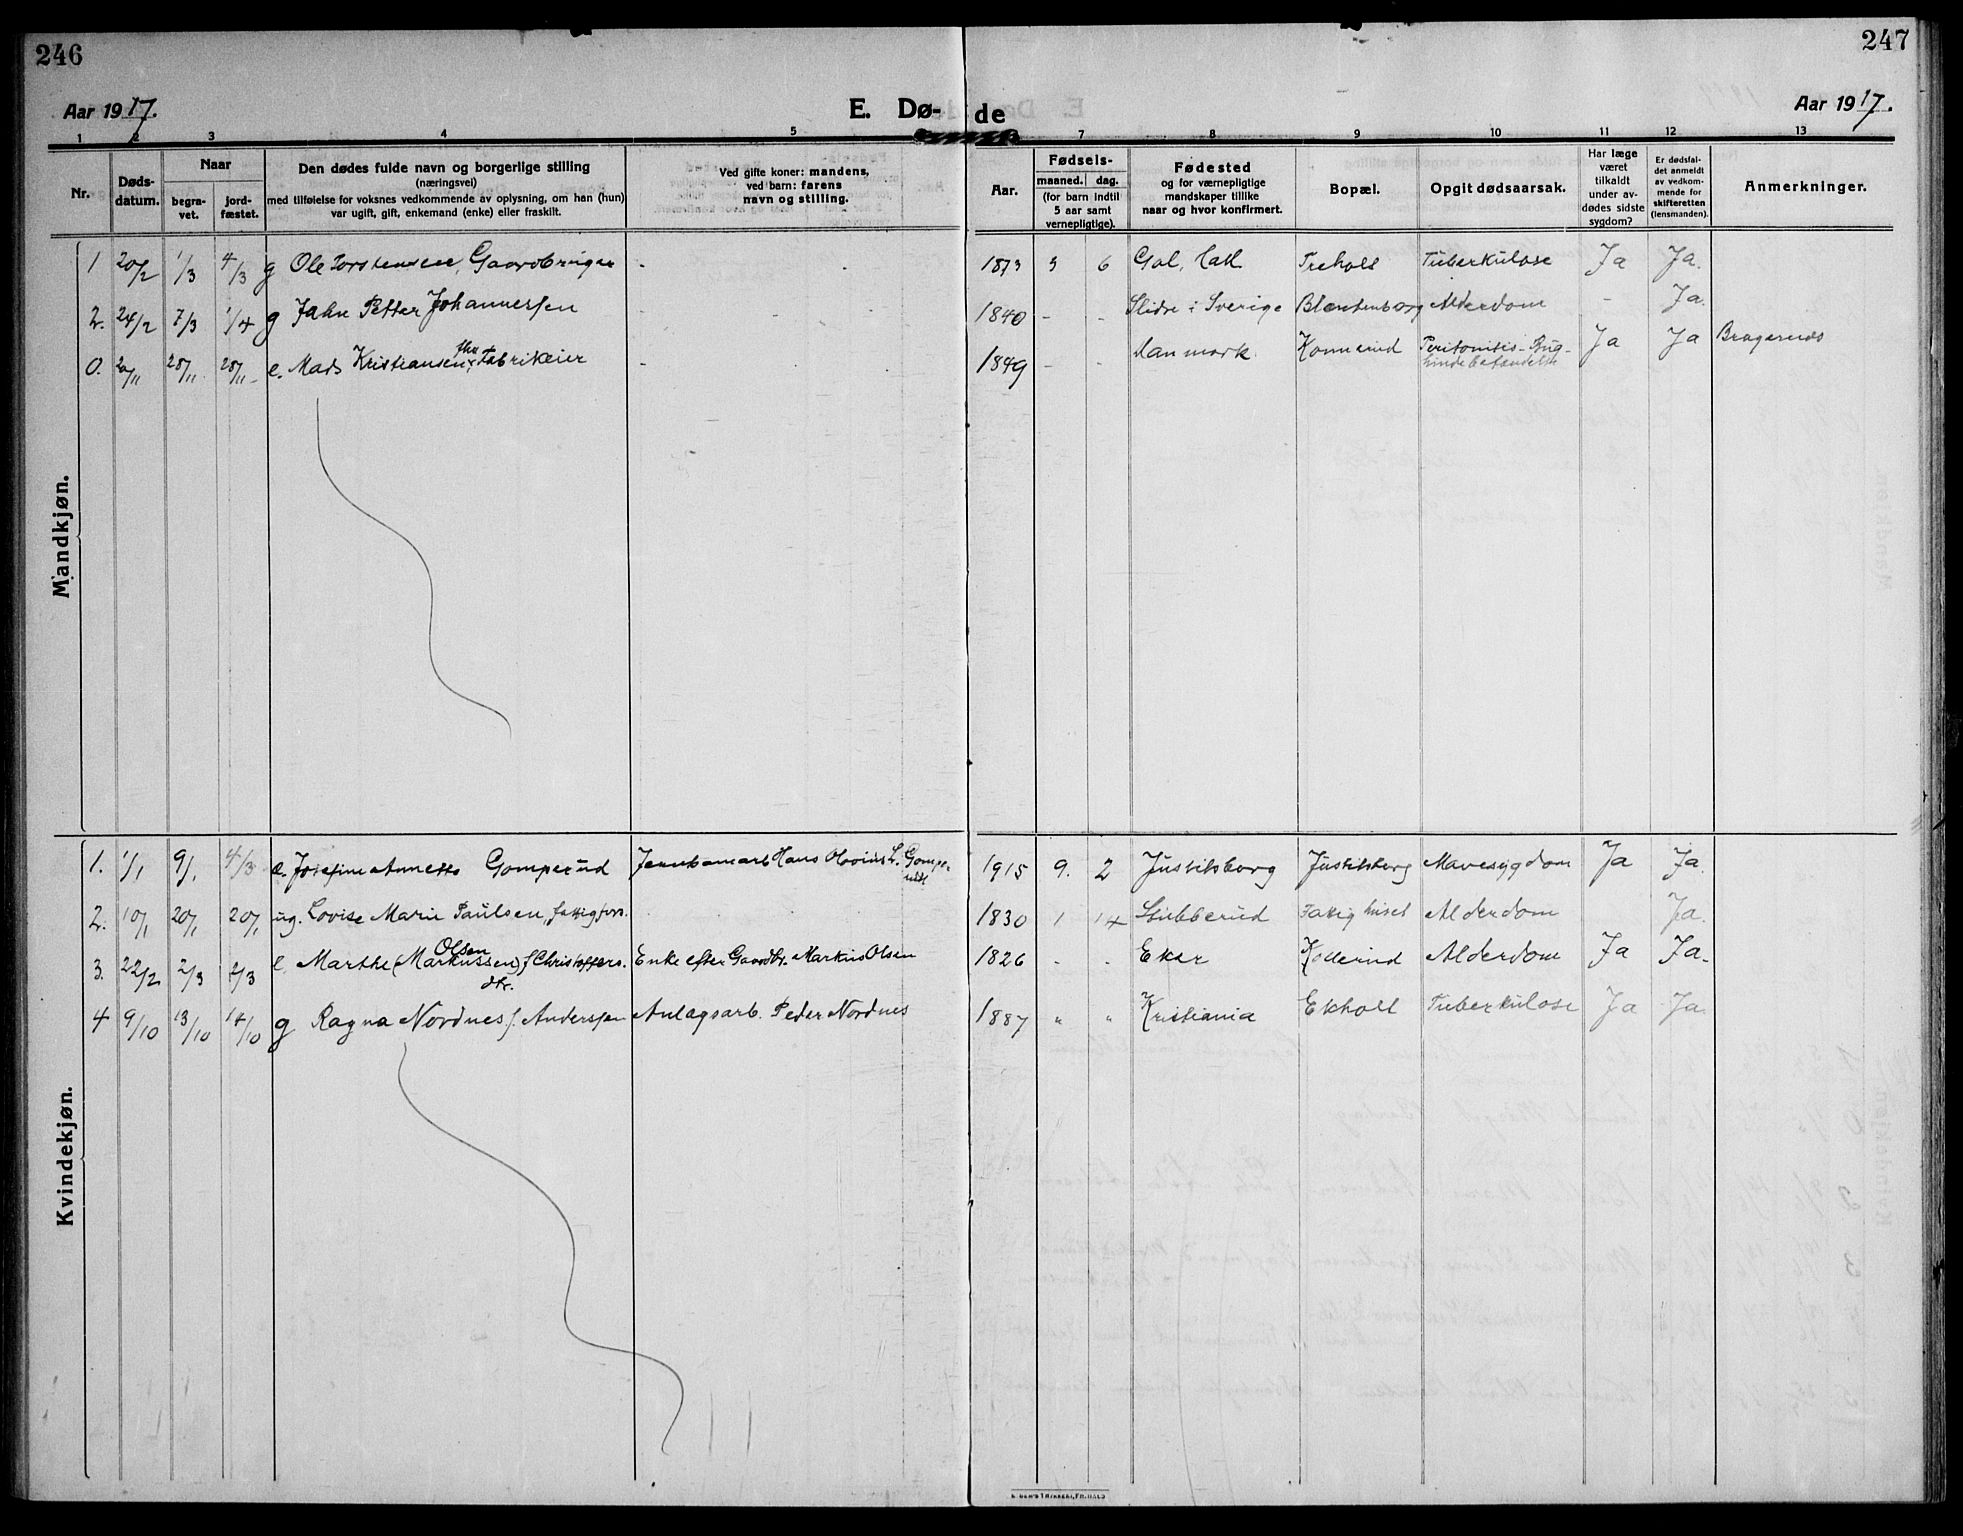 246
247
Aar 1917.
E. Dø-
de
Aar 1917.
1 2 3 4 5 7 8 9 10 11 12 13
Nr.
Døds-
datum.
Naar
begra-
vet.
jord-
fæstet.
Den dødes fulde navn og borgerlige stilling
(næringsvei)
med tilføielse for voksnes vedkommende av oplysning, om han (hun)
var ugift, gift, enkemand (enke) eller fraskilt.
Ved gifte koner: mandens,
ved barn: farens
navn og stilling.
Aar.
Fødsels-
maaned. dag.
(for barn indtil
5 aar samt
vernepligtige).
Fødested
og for værnepligtige
mandskaper tillike
naar og hvor konfirmert.
Bopæl.
Opgit dødsaarsak.
Har læge
været
tilkaldt
under av-
dødes sidste
sygdom?
Er dødsfal-
det anmeldt
av vedkom-
mende for
skifteretten
(lensmanden).
Anmerkninger.
Mandkjøn.
1 20/2 1/3 4/3 g Ole Torstensen, Gaardbruger - 1873 5 6 Gol, Hall. Treholt Tuberkulose Ja Ja.
2. 24/2 7/3 1/4 g Jahn Petter Johannessen 1840 - - Slidre i Sverige Alderdom - Ja.
0. 28/11 28/11 e. Mads Kristiansen, fhv. Fabrikeier - 1849 - - Danmark Konnerud Peritonitis - Bug-
hindebetændelse Ja Ja Bragernes
Kvindekjøn.
1. 1/1 9/1 4/3 e. Josefine Annette Gomperud Jernbanearb. Hans Olovius L. Gompe-
rud 1915 9. 2 Justitsborg Justitsberg Mavesygdom Ja Ja.
2. 10/1 20/1 20/1 ug. Lovise Marie Paulsen, fattigfors. 1830 1 14 Stubberud Fattighuset Alderdom Ja.
3. 22/2 2/3 2/3 e. Marthe (Markussen) Olsen f. Christoffers.
dtr. Enke efter Gaardbr. Markus Olsen 1826 - - Eker Kollerud Alderdom Ja Ja.
4 9/10 13/10 14/10 g Ragna Nordnes f. Anderssen Anlægsarb. Peder Nordnes 1887 " " Kristiania Ekholt Tuberkulose Ja Ja.